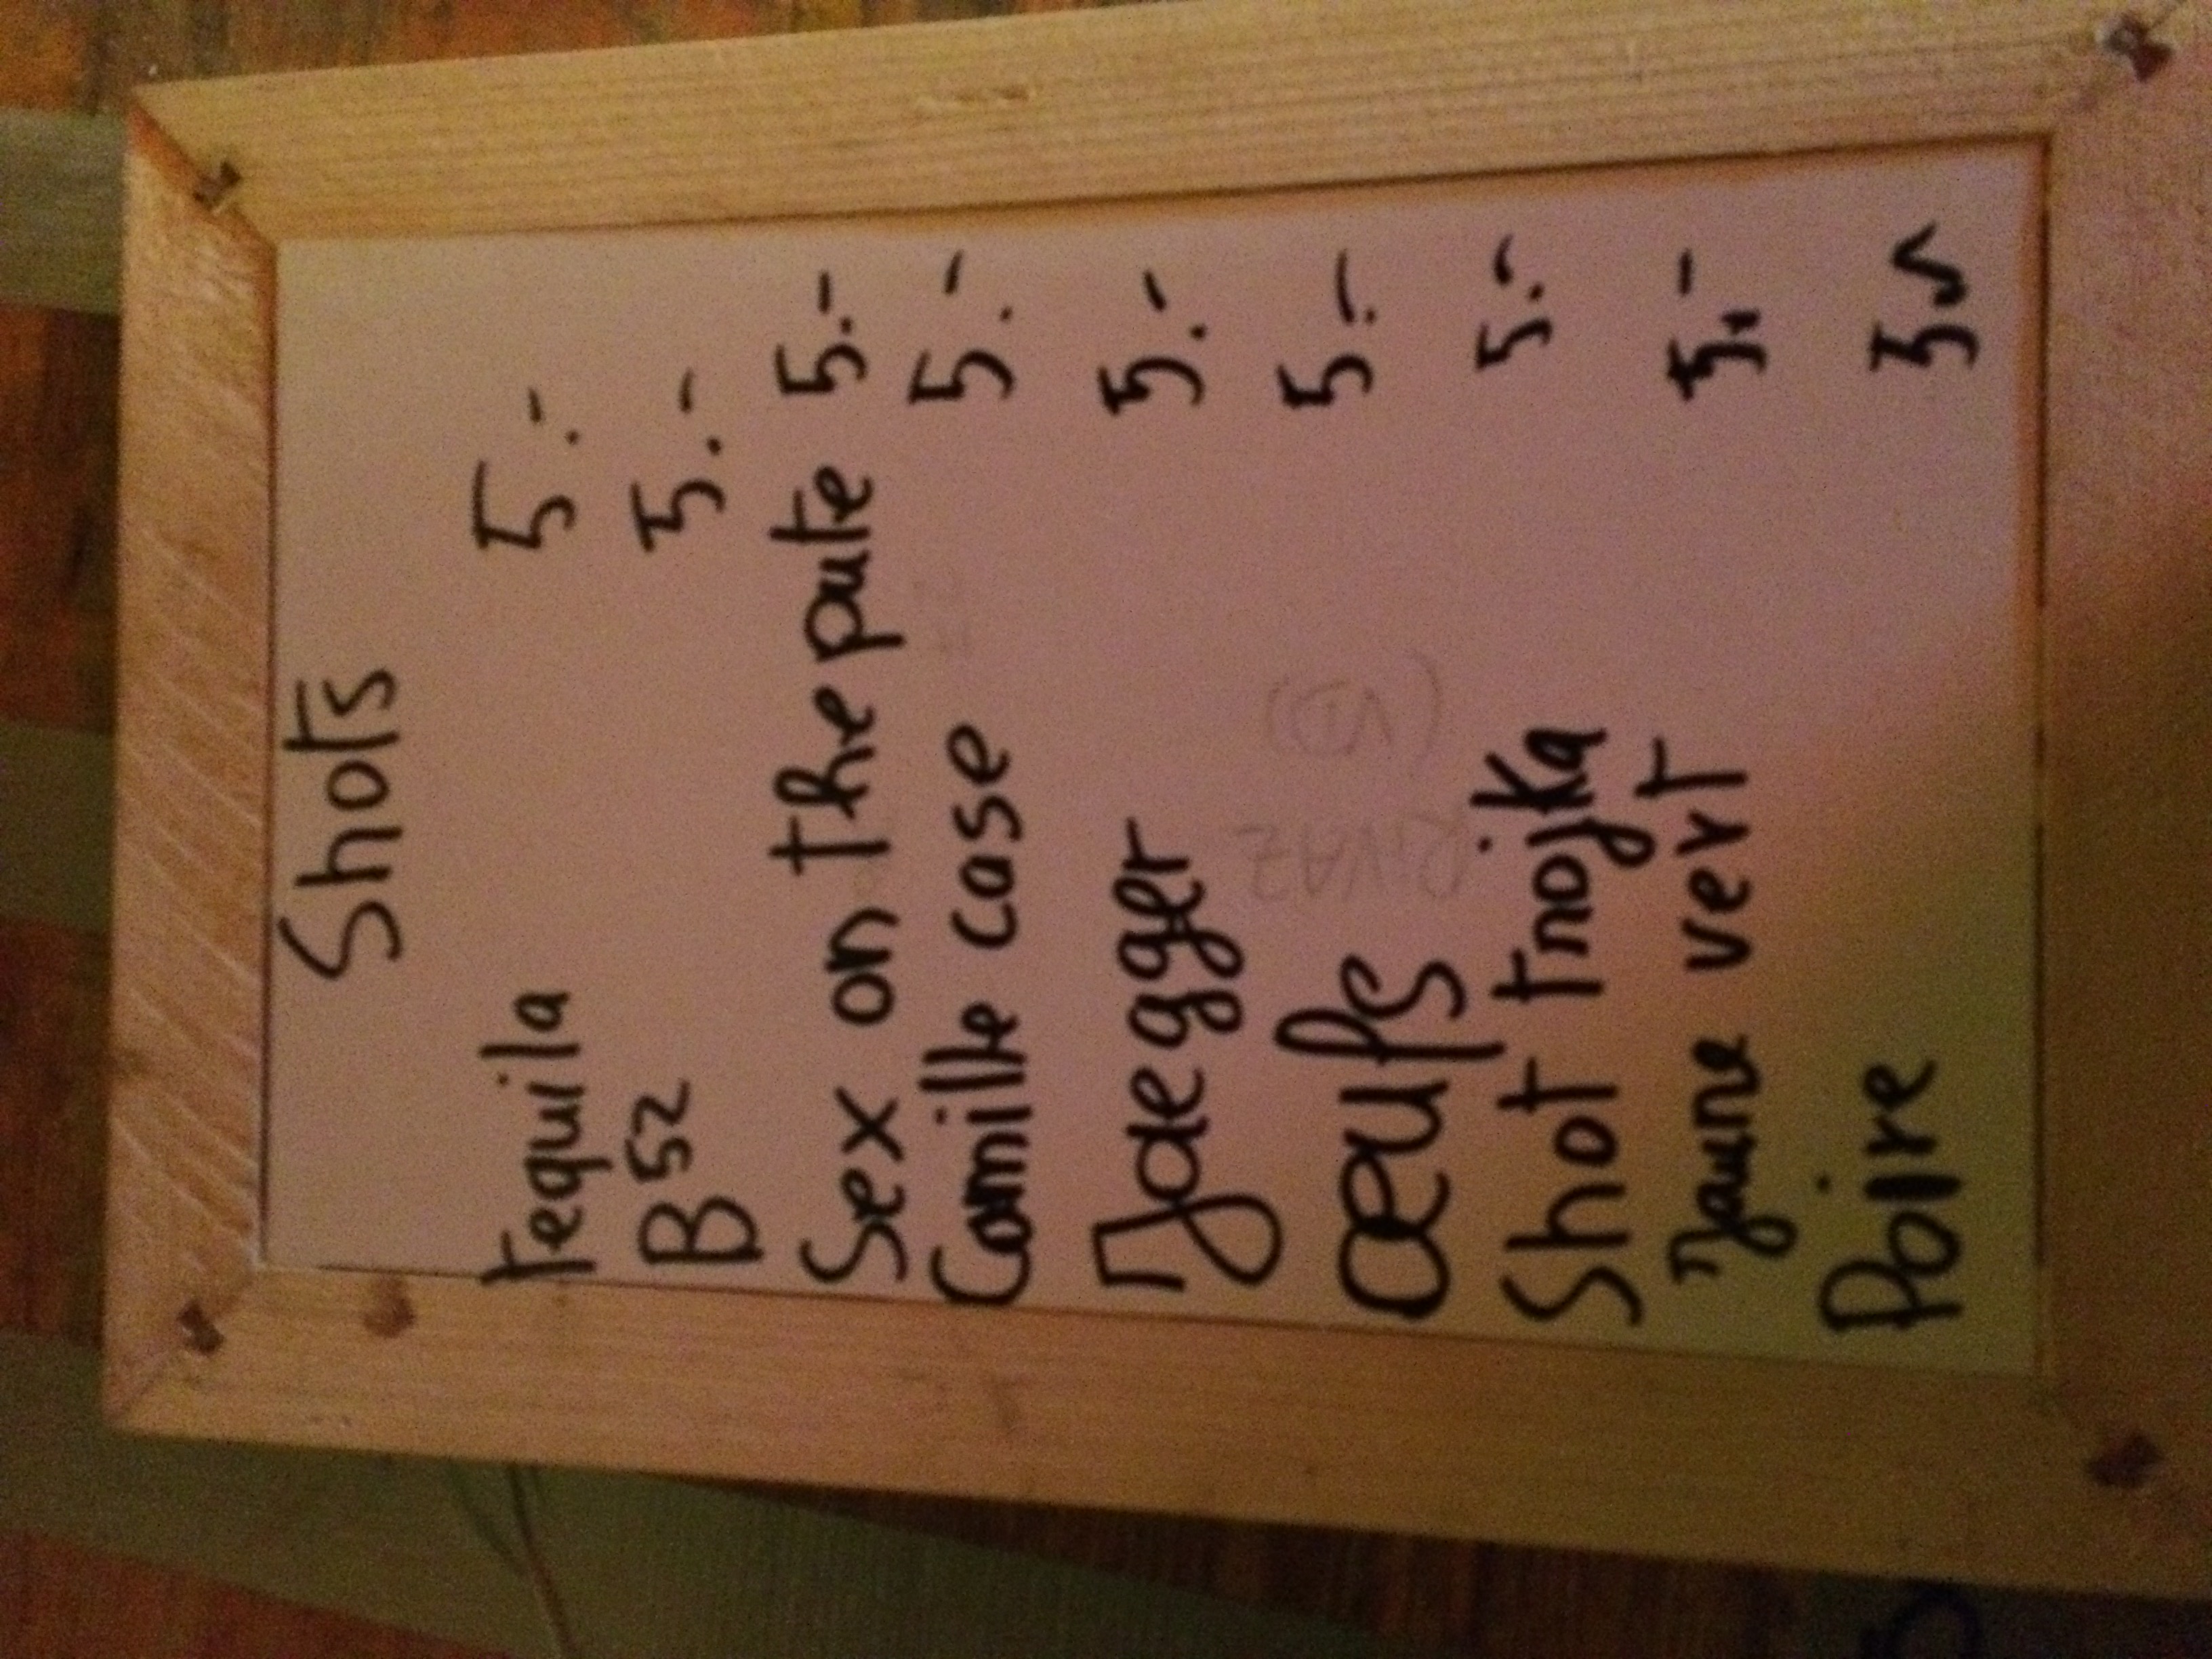 Shots
Tequila 5.-
B52 5.-
Sex on the pute 5.-
Camille case 5.-
Jaegger 5.-
Œufs 5.-
Shot Tnojka 5.-
Jaune vert 5.-
Poire 5
RIVAZ
(VD)